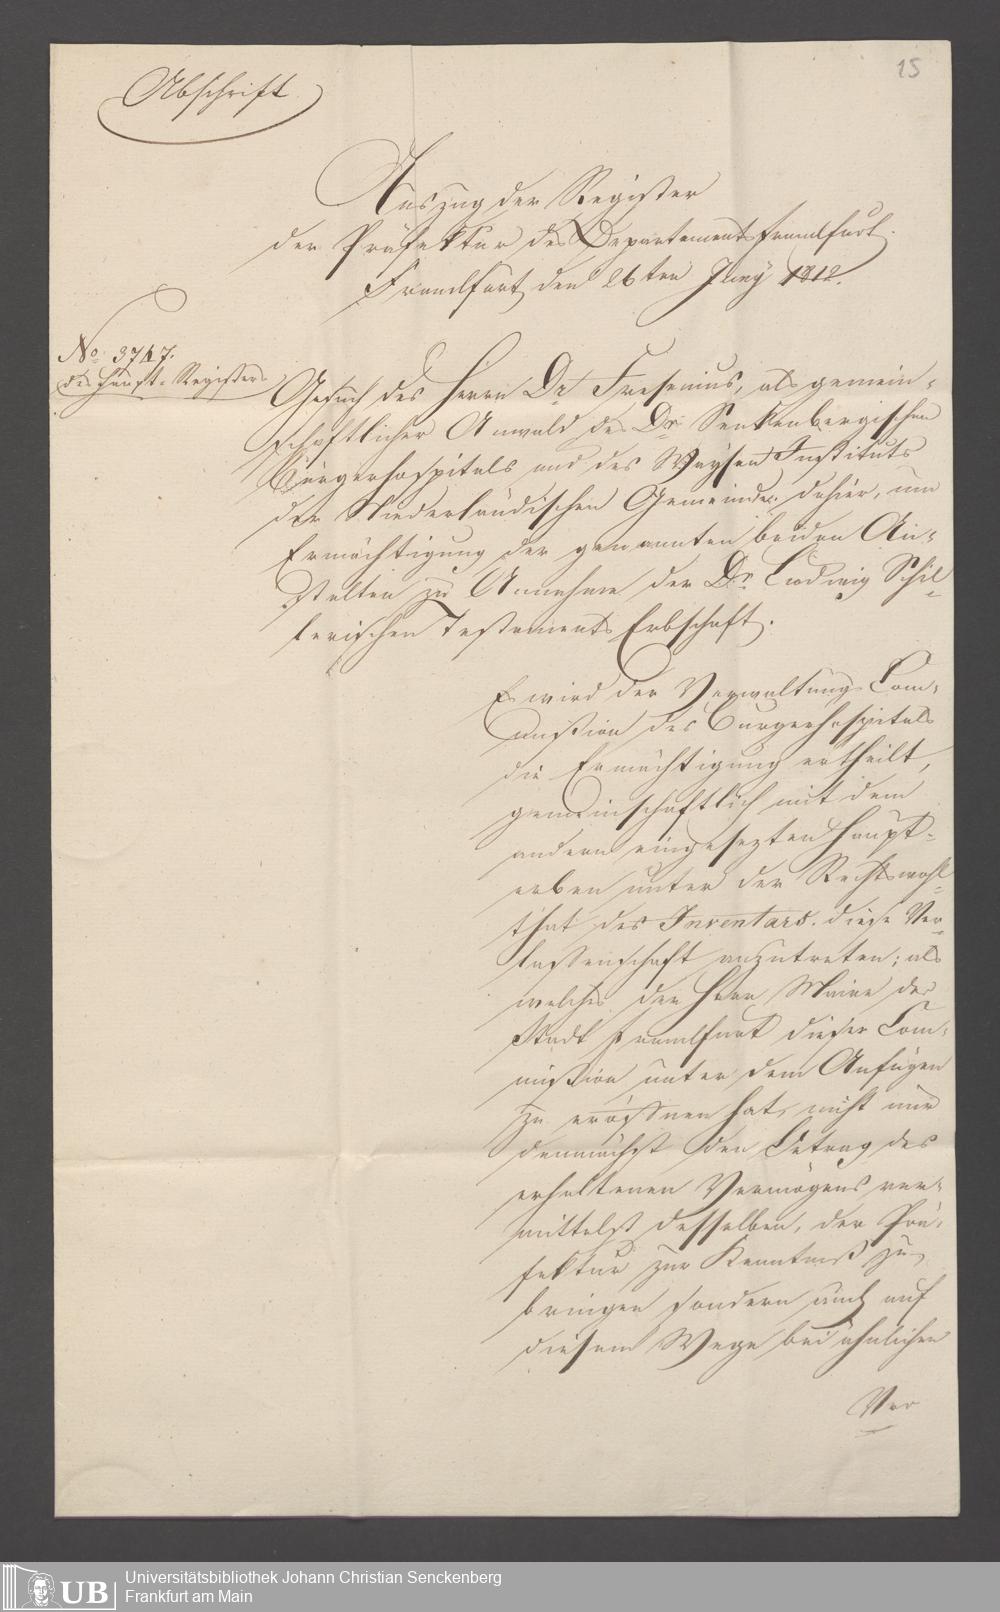 15
Abschrift
Auszug der Register
der Präfektur des Departements Frankfurt.
Frankfurt den 26ten Juny 1812.
No. 3747.
des Haupt-Registers
Gesuch des Herrn Dr. Fresenius, als gemein-
schaftlicher Anwald des Dr. Senkenbergischen
Bürgerhospitals und des Waysen Instituts
der Niederländischen Gemeinde dahier, um
Ermächtigung der genannten beiden An-
stalten zu Annahme der Dr. Ludwig Schil-
lerischen Testaments Erbschaft.
Es wird der Verwaltungs Com-
mission des Bürgerhospitals
die Ermächtigung ertheilt,
gemeinschaftlich mit dem
andern eingesezten Haupt-
erben unter der Rechtswohl-
that des Inventars diese Ver-
lassenschaft anzutreten; als
welches der Herr Maire der
Stadt Frankfurt dieser Com-
mission unter dem Anfügen
zu eröffnen hat, nicht nur
demnächst den Betrag des
erhaltenen Vermögens ver-
mittelst desselben, der Prä-
fektur zur Kenntniß zu
bringen sondern auch auf
diesem Wege bei ähnlichen
Ver
UB
Universitätsbibliothek Johann Christian Senckenberg
Frankfurt am Main